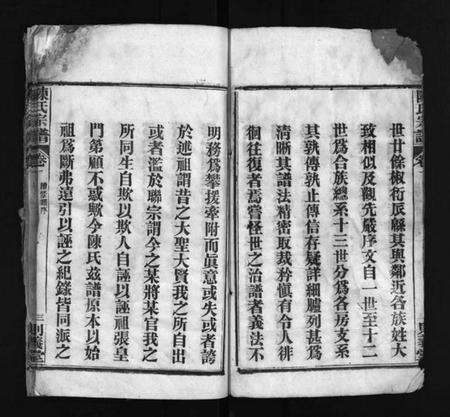 世廿餘椒衍辰縣其與鄰近各族姓大
致相似及觀先嚴序文自一世至十二
世爲合族總系十三世分爲各房支系
其孰傳孰止傳信存疑詳細臚列甚爲
清晰其譜法精密取裁矜愼有令人徘
徊往復者焉嘗怪世之治譜者義法不
陳氏宗譜 卷
明務爲攀援牽附而眞意或失或者誇
於述祖謂昔之大聖大賢我之所自出
或者濫於聯宗謂今之某將某官我之
所同生自欺以欺人自誣以誣祖張皇
門第顧不惑歟今陳氏茲譜原本以始
祖爲斷弗遠引以誣之紀錄皆同派之
陳氏宗譜 卷
三 則義堂